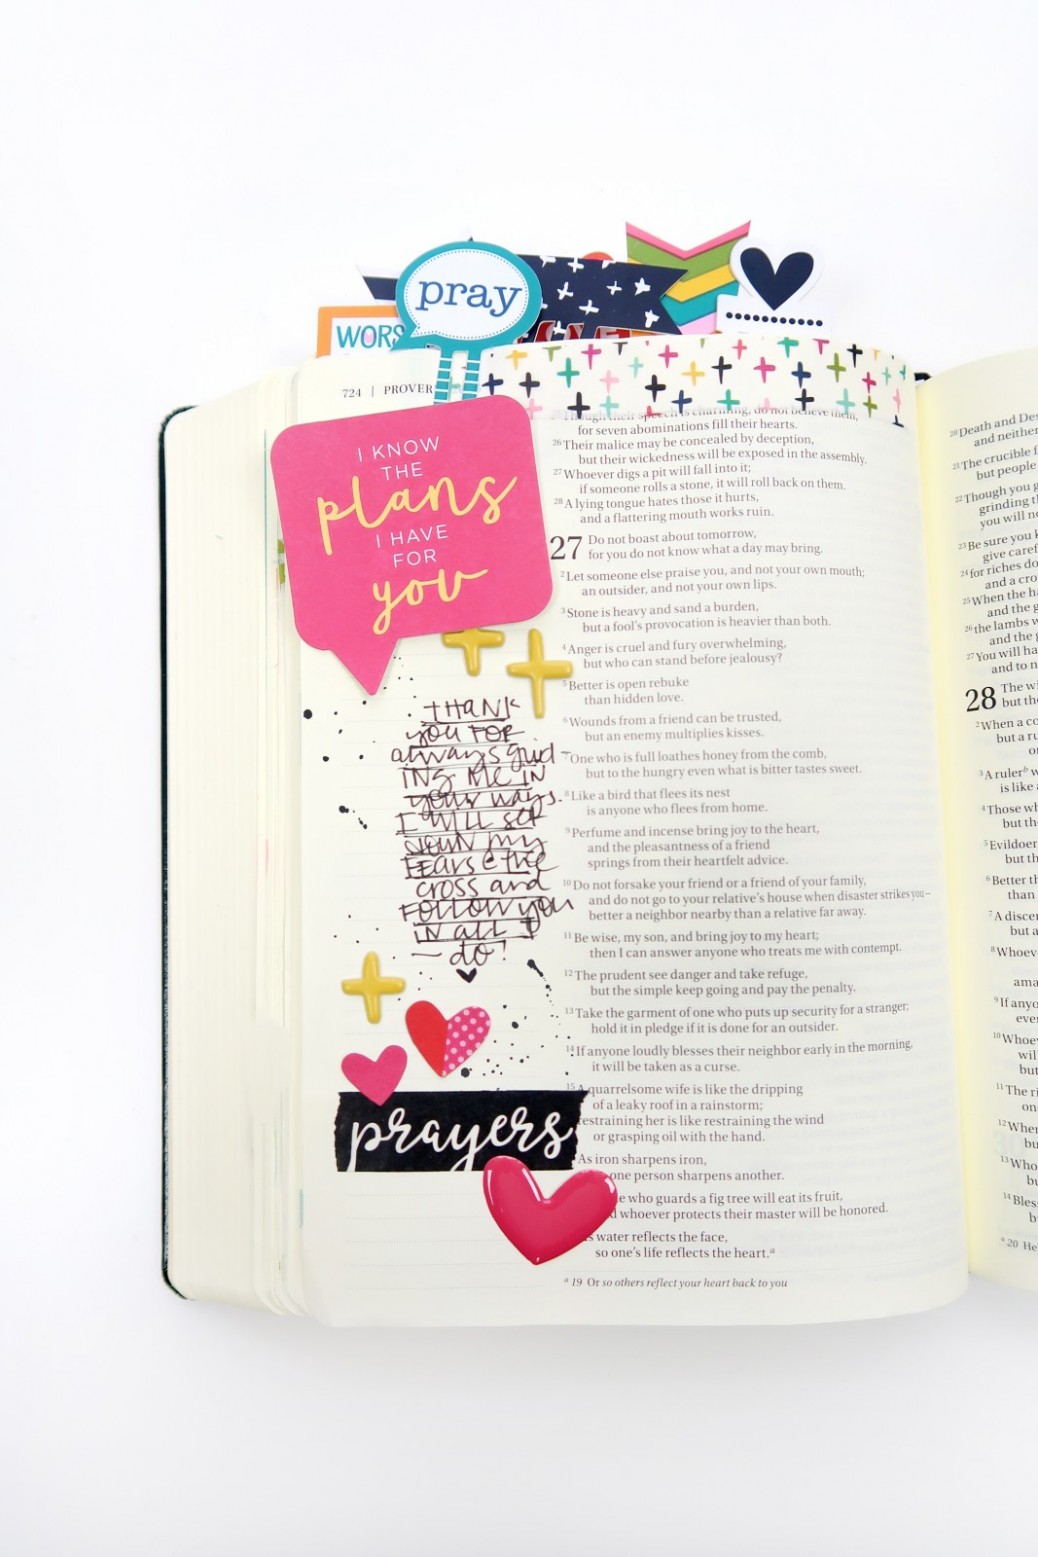 pray
WORS
724 | PROVER
I KNOW
THE
plans
I HAVE
FOR
you
THANK
you FOR
always guid
ING ME IN
your ways.
I WILL set
down my
FEARS @ the
cross and
FOLLOW you
IN all I
do!
prayers
Though their speech is charming, do not believe them,
for seven abominations fill their hearts.
26 Their malice may be concealed by deception,
but their wickedness will be exposed in the assembly.
27 Whoever digs a pit will fall into it;
if someone rolls a stone, it will roll back on them.
28 A lying tongue hates those it hurts,
and a flattering mouth works ruin.
27 Do not boast about tomorrow,
for you do not know what a day may bring.
2 Let someone else praise you, and not your own mouth;
an outsider, and not your own lips.
3 Stone is heavy and sand a burden,
but a fool's provocation is heavier than both.
4 Anger is cruel and fury overwhelming,
but who can stand before jealousy?
5 Better is open rebuke
than hidden love.
6 Wounds from a friend can be trusted,
but an enemy multiplies kisses.
7 One who is full loathes honey from the comb,
but to the hungry even what is bitter tastes sweet.
8 Like a bird that flees its nest
is anyone who flees from home.
9 Perfume and incense bring joy to the heart,
and the pleasantness of a friend
springs from their heartfelt advice.
10 Do not forsake your friend or a friend of your family,
and do not go to your relative's house when disaster strikes you—
better a neighbor nearby than a relative far away.
11 Be wise, my son, and bring joy to my heart;
then I can answer anyone who treats me with contempt.
12 The prudent see danger and take refuge,
but the simple keep going and pay the penalty.
13 Take the garment of one who puts up security for a stranger;
hold it in pledge if it is done for an outsider.
14 If anyone loudly blesses their neighbor early in the morning,
it will be taken as a curse.
15 A quarrelsome wife is like the dripping
of a leaky roof in a rainstorm;
restraining her is like restraining the wind
or grasping oil with the hand.
As iron sharpens iron,
one person sharpens another.
who guards a fig tree will eat its fruit,
whoever protects their master will be honored.
water reflects the face,
so one's life reflects the heart.a
a 19 Or so others reflect your heart back to you
20 Death and Des
and neither
21 The crucible f
but people
22 Though you g
grinding th
you will no
23 Be sure you k
give caref
24 for riches do
and a cro
25 When the ha
and the g
26 the lambs w
and the g
27 You will ha
and to n
28 The wi
but the
2 When a co
but a ru
3 A ruler b w
is like a
4 Those wh
but the
5 Evildoer
but th
6 Better th
than
7 A discer
but a
8 Whoev
ama
9 If anyo
ever
10 Whoev
will
but
11 The ri
on
12 When
bu
13 Who
bu
14 Bless
bu
a 20 He